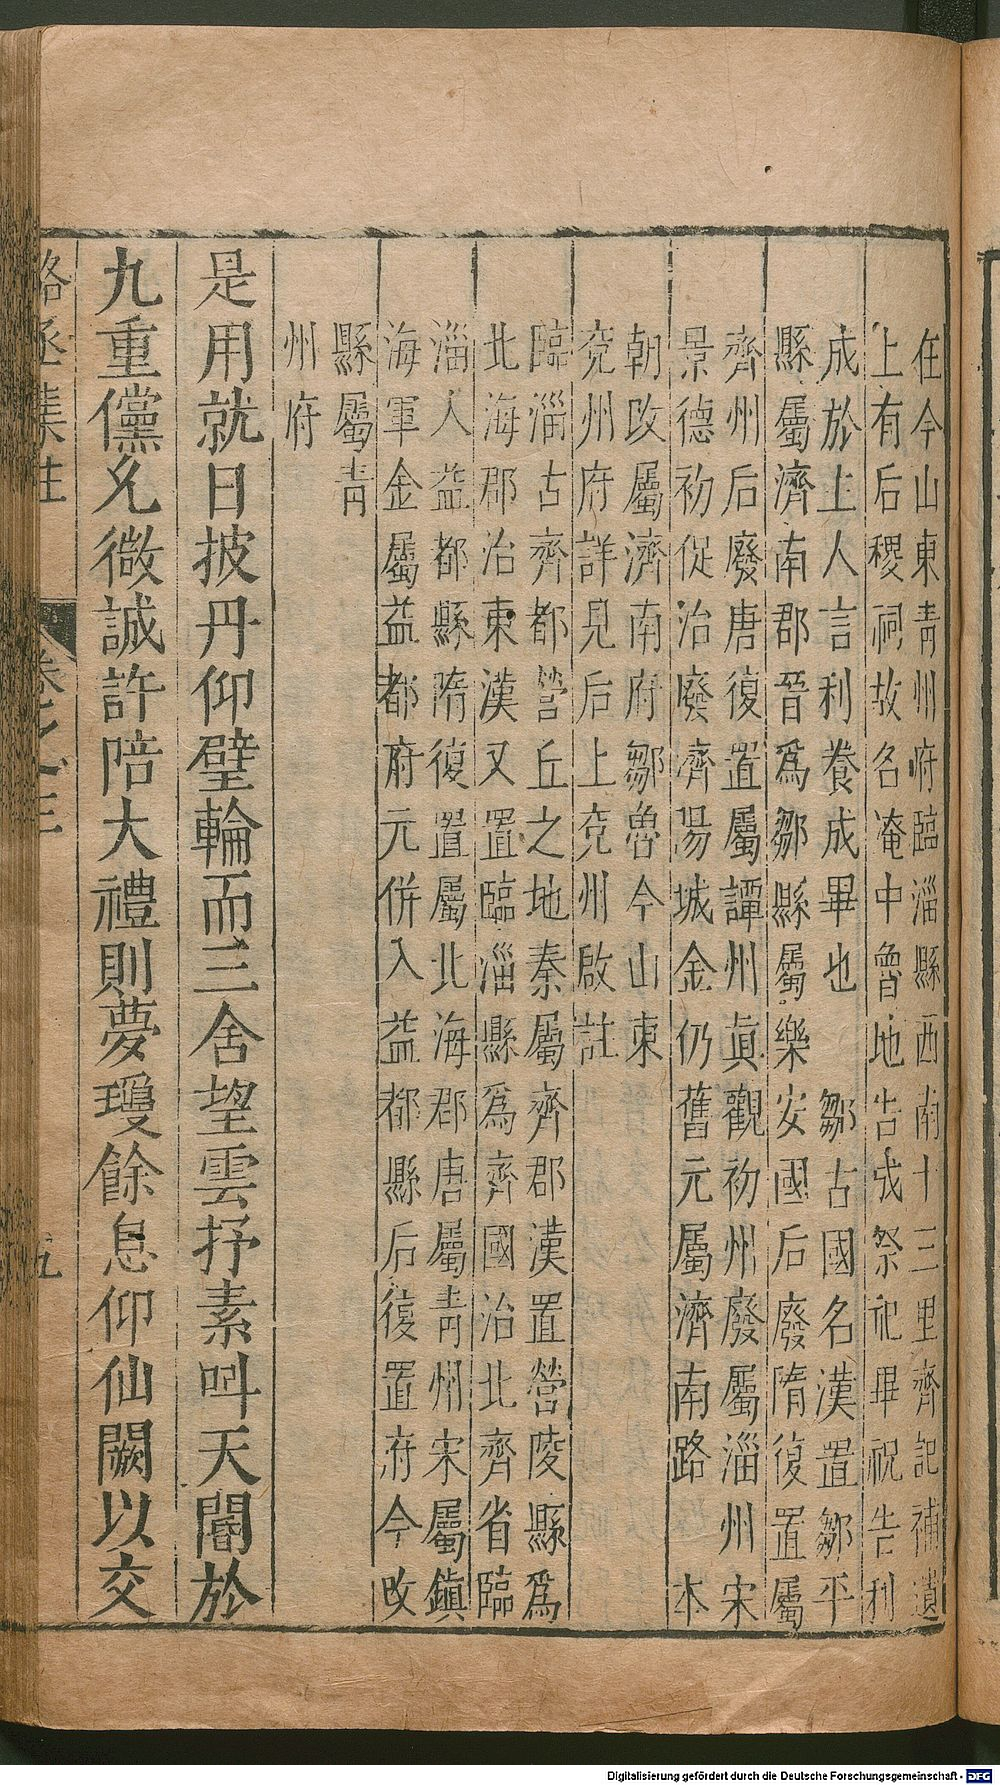 在今山東靑州府臨淄縣西南十三里齊記補遺
上有后稷祠故名淹中魯地告成祭祀畢祝告利
成於上人言利養成畢也　鄒古國名漢置鄒平
縣屬濟南郡晉爲鄒縣屬樂安國后廢隋復置屬
齊州后廢唐復置屬譚州眞觀初州廢屬淄州宋
景德初促治廢濟陽城金仍舊元屬濟南路　本
朝改屬濟南府鄒魯今山東
兗州府詳見后上兗州啟註
臨淄古齊都營丘之地秦屬齊郡漢置營陵縣爲
北海郡治東漢又置臨淄縣爲齊國治北齊省臨
淄入益都縣隋復置屬北海郡唐屬靑州宋屬鎭
海軍金屬益都府元併入益都縣后復置府今改
縣屬靑
州府
是用就日披丹仰璧輪而三舍望雲抒素呌天閽於
九重儻允微誠許陪大禮則夢瓊餘息仰仙闕以交
駱丞集註　卷之三　九
Digitalisierung gefördert durch die Deutsche Forschungsgemeinschaft - DFG